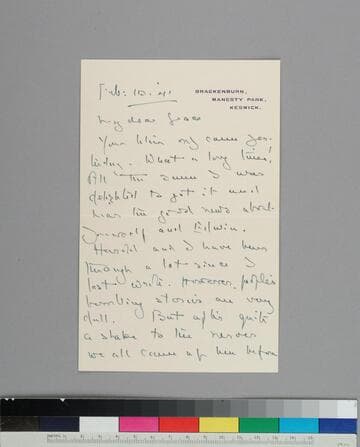 BRACKENBURN,
MANESTY PARK,
KESWICK.
Feb: 10. '41
My dear Grace
Your letter only came yes-
terday. What a long time!
All the same I was
delighted to get it and
hear the good news about
yourself and Edwin.
Harold and I have been
through a lot since I
last wrote. However people's
bombing stories are very
dull. But after quite
a shake to the nerves
we all came up here before